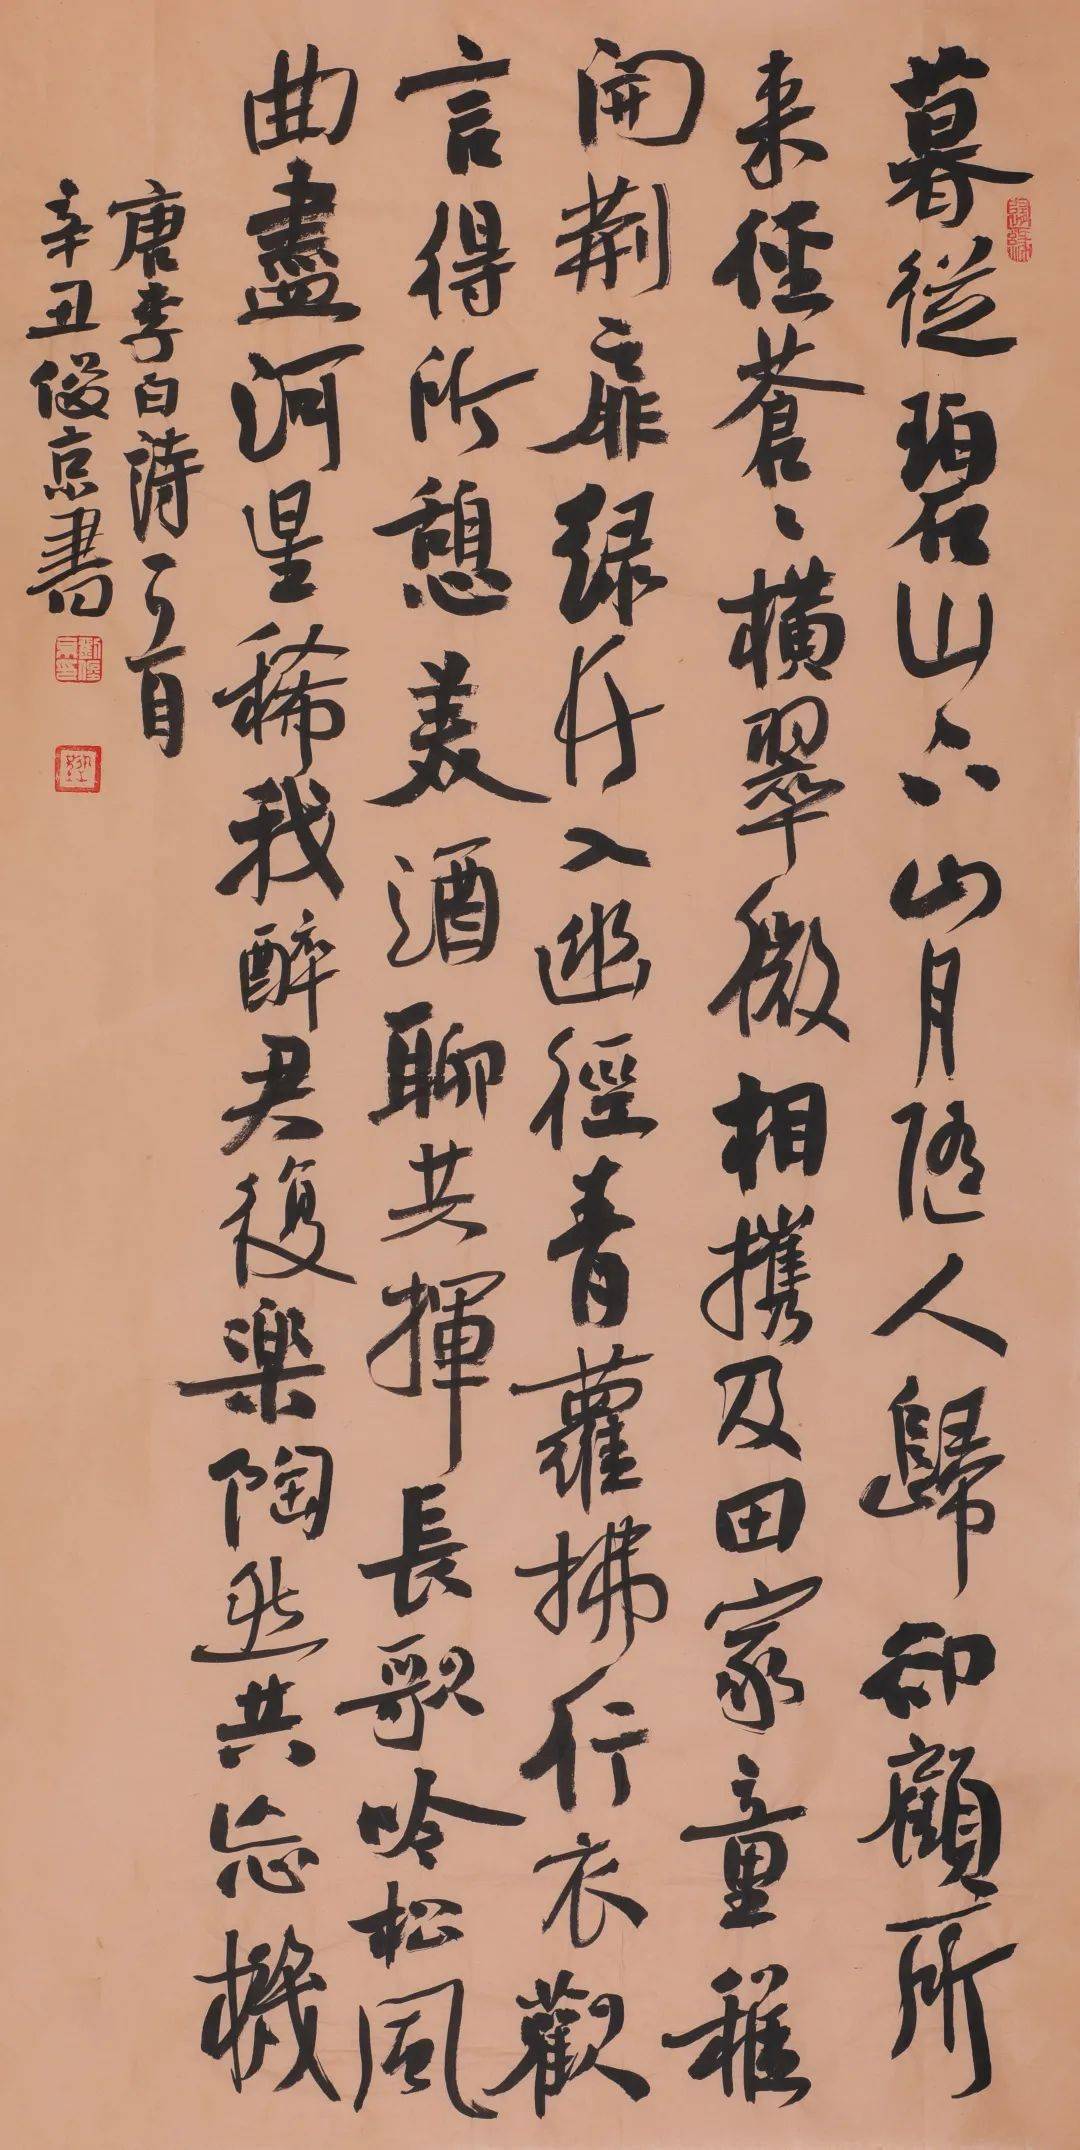 暮從碧山下山月隨人歸却顧所
来徑蒼々橫翠微相攜及田家童稚
開荆扉緑竹入幽徑青蘿拂行衣歡
言得所憩美酒聊共揮長歌吟松風
曲盡河星稀我醉君復樂陶然共忘機
唐李白詩一首
辛丑俊京書
劉俊京印